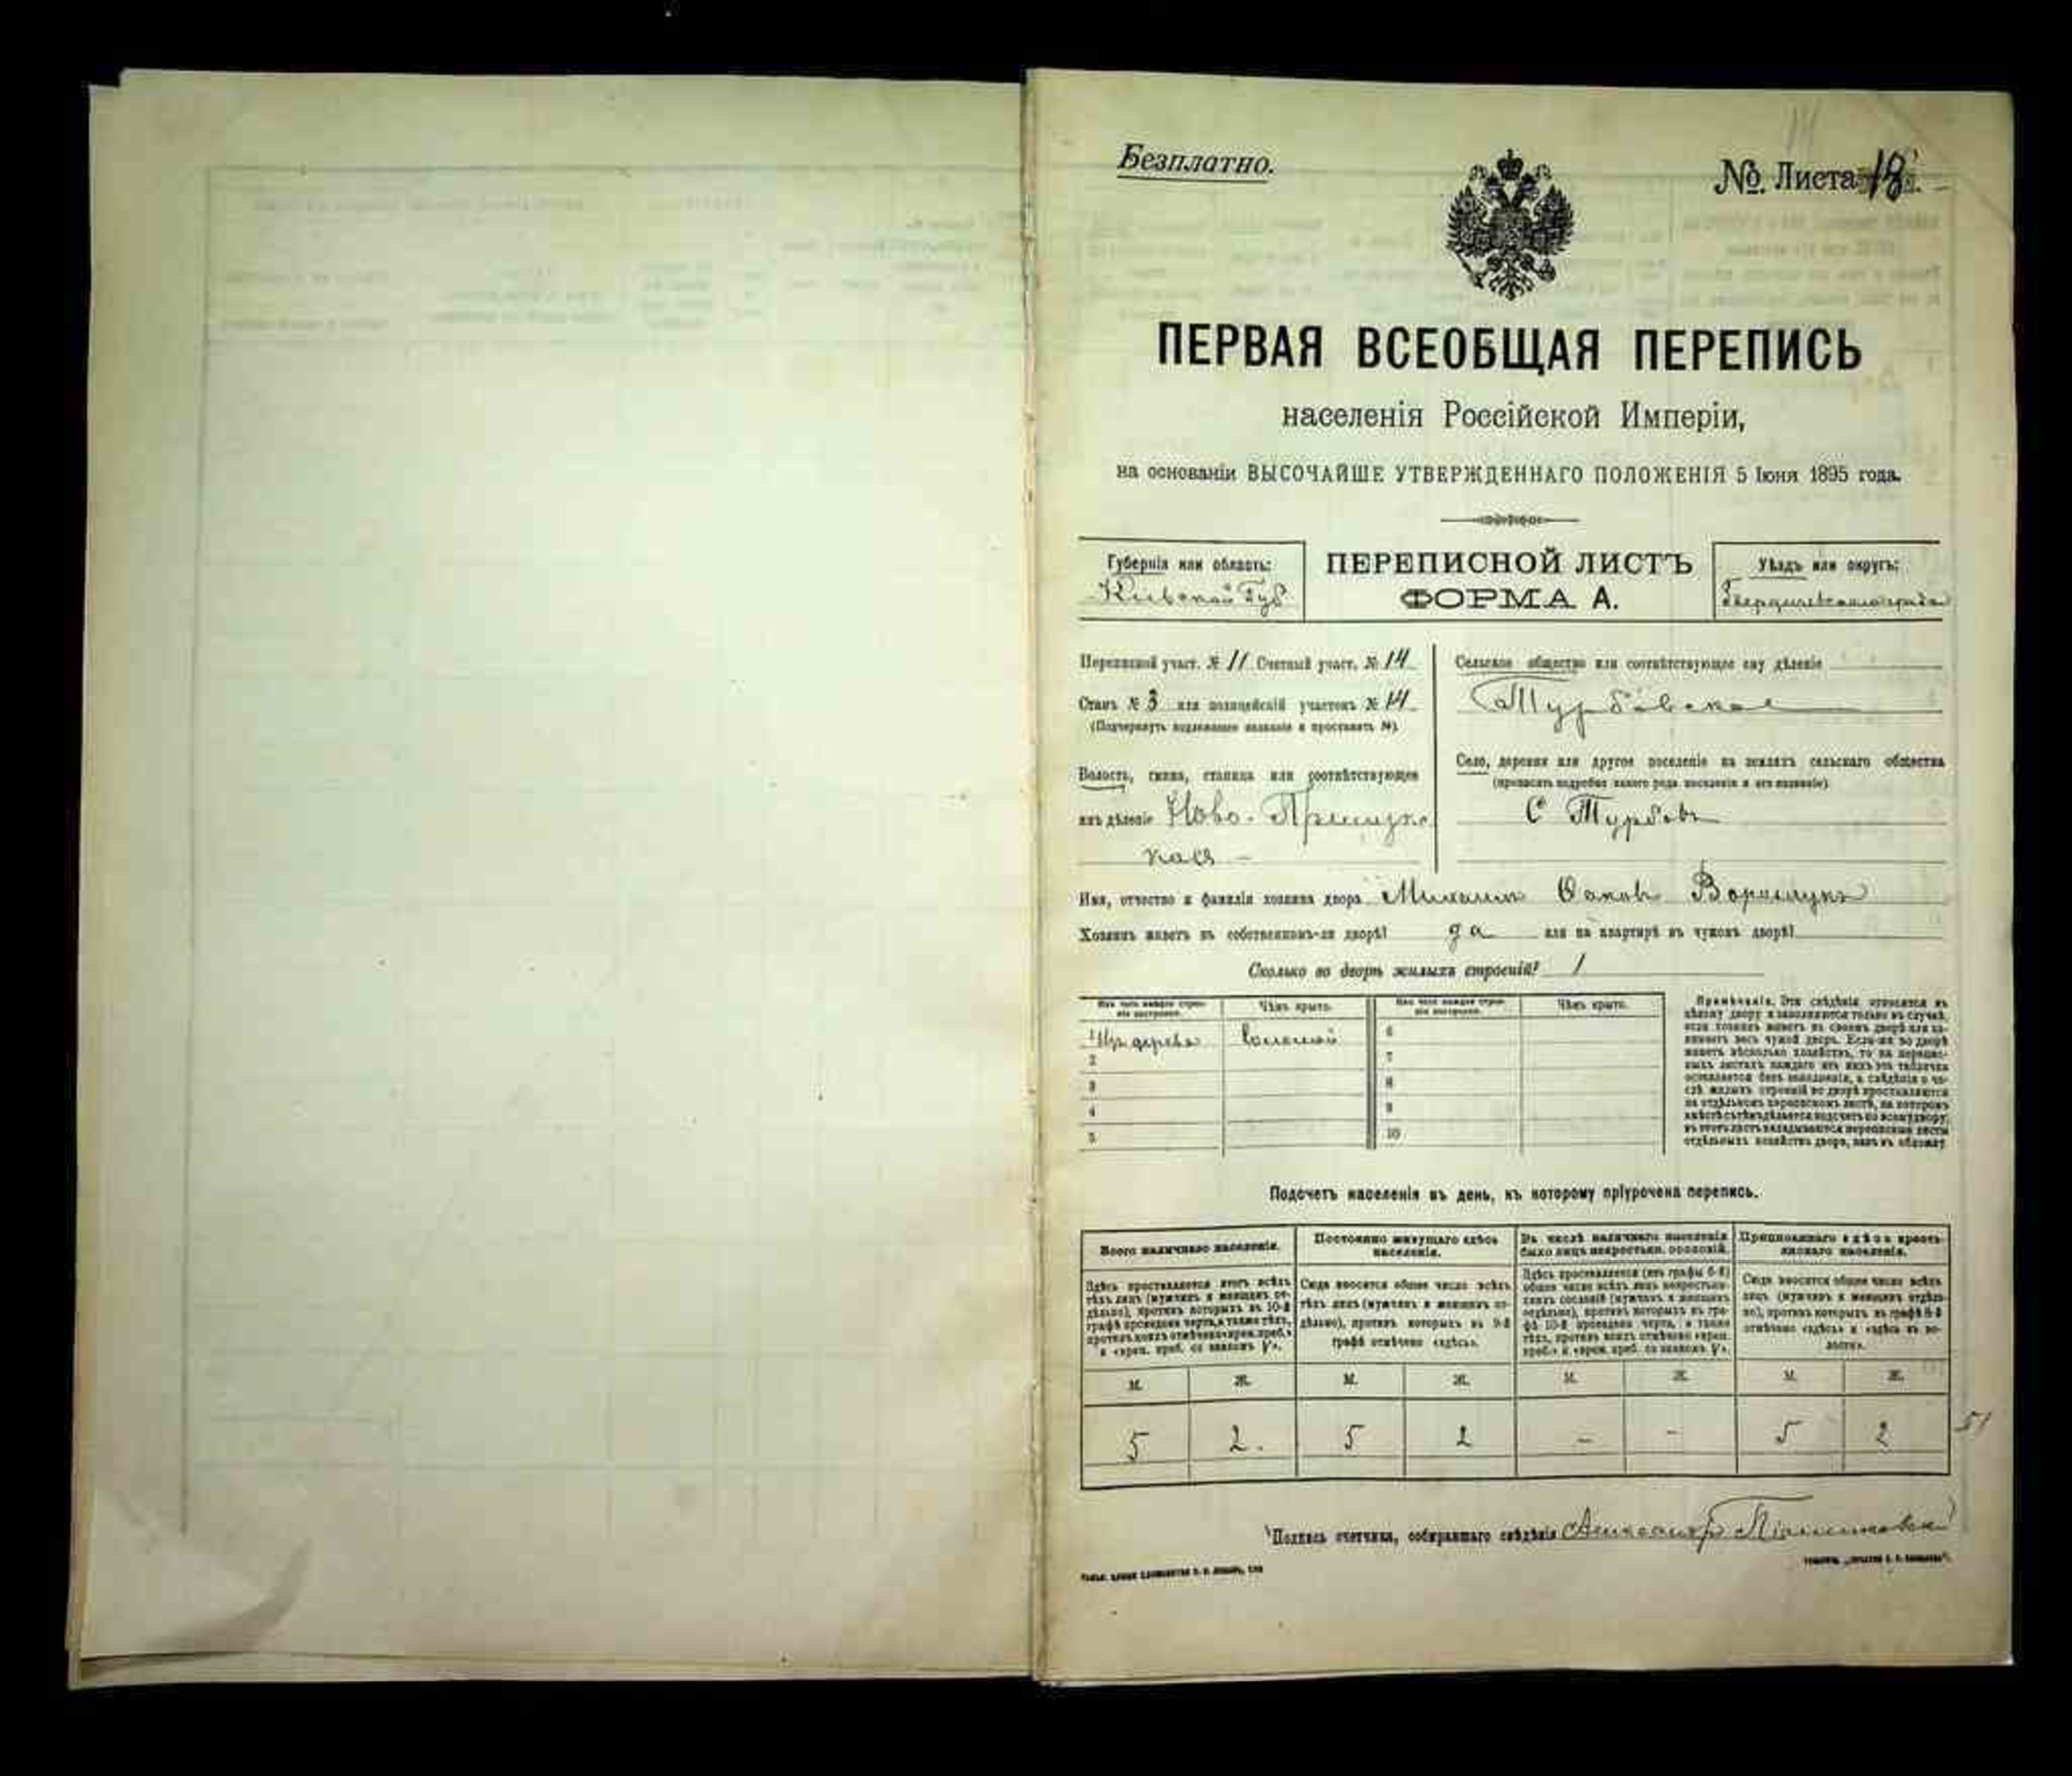 Безплатно.
№ Листа 18.
ПЕРВАЯ ВСЕОБЩАЯ ПЕРЕПИСЬ
населенія Россійской Имперіи,
на основаніи ВЫСОЧАЙШЕ УТВЕРЖДЕННАГО ПОЛОЖЕНІЯ 5 Іюня 1895 года.
Губернія или область:
Кіевской Губ
ПЕРЕПИСНОЙ ЛИСТЪ
ФОРМА А.
Уѣздъ или округъ:
Переписной участ. № 11 Счетный участ. № 14
Станъ № 3 или полицейскій участокъ № 14
(Подчеркнуть подлежащее названіе и проставить №).
Волость, гмина, станица или соотвѣтствующее
имъ дѣленіе Ново-
кая
Сельское общество или соотвѣтствующее ему дѣленіе
Турбовское
Село, деревня или другое поселеніе на земляхъ сельскаго общества
(прописать подробно какого рода поселеніе и его названіе)
С Турбовъ
Имя, отчество и фамилія хозяина двора Михаилъ
Хозяинъ живетъ въ собственномъ-ли дворѣ? да или на квартирѣ въ чужомъ дворѣ?
Сколько во дворѣ жилыхъ строеній? 1
Изъ чего каждое строеніе построено.
Чѣмъ крыто.
Изъ чего каждое строеніе построено.
Чѣмъ крыто.
1 Изъ дерева Соломой 6
2 7
3 8
4 9
5 10
Примѣчаніе. Эти свѣдѣнія относятся къ
цѣлому двору и заполняются только въ случаѣ,
если хозяинъ живетъ въ своемъ дворѣ или за-
нимаетъ весь чужой дворъ. Если-же во дворѣ
живетъ нѣсколько хозяйствъ, то на перепис-
ныхъ листахъ каждаго изъ нихъ эта табличка
оставляется безъ заполненія, а свѣдѣнія о чи-
слѣ жилыхъ строеній во дворѣ проставляются
на отдѣльномъ переписномъ листѣ, на которомъ
вмѣстѣ съ тѣмъ дѣлается подсчетъ по всему двору;
въ этотъ листъ вкладываются переписные листы
отдѣльныхъ хозяйствъ двора, какъ въ обложку.
Подсчетъ населенія въ день, къ которому пріурочена перепись.
Всего наличнаго населенія.
Постоянно живущаго здѣсь
населенія.
Въ числѣ наличнаго населенія
было лицъ некрестьян. сословій.
Приписаннаго здѣсь кресть-
янскаго населенія.
Здѣсь проставляется итогъ всѣхъ
тѣхъ лицъ (мужчинъ и женщинъ от-
дѣльно), противъ которыхъ въ 10-й
графѣ проведена черта, а также тѣхъ,
противъ коихъ отмѣчено «врем. преб.»
и «врем. преб. со знакомъ V».
Сюда вносится общее число всѣхъ
тѣхъ лицъ (мужчинъ и женщинъ от-
дѣльно), противъ которыхъ въ 9-й
графѣ отмѣчено «здѣсь».
Здѣсь проставляется (изъ графы 6-й)
общее число всѣхъ лицъ некрестьян-
скихъ сословій (мужчинъ и женщинъ
отдѣльно), противъ которыхъ въ гра-
фѣ 10-й проведена черта, а также
тѣхъ, противъ коихъ отмѣчено «врем.
преб.» и «врем. преб. со знакомъ V».
Сюда вносится общее число всѣхъ
лицъ (мужчинъ и женщинъ отдѣль-
но), противъ которыхъ въ графѣ 8-й
отмѣчено «здѣсь» и «здѣсь въ во-
лости».
М. Ж. М. Ж. М. Ж. М. Ж.
5 2. 5 2 - - 5 2
51
Подпись счетчика, собиравшаго свѣдѣнія Александр